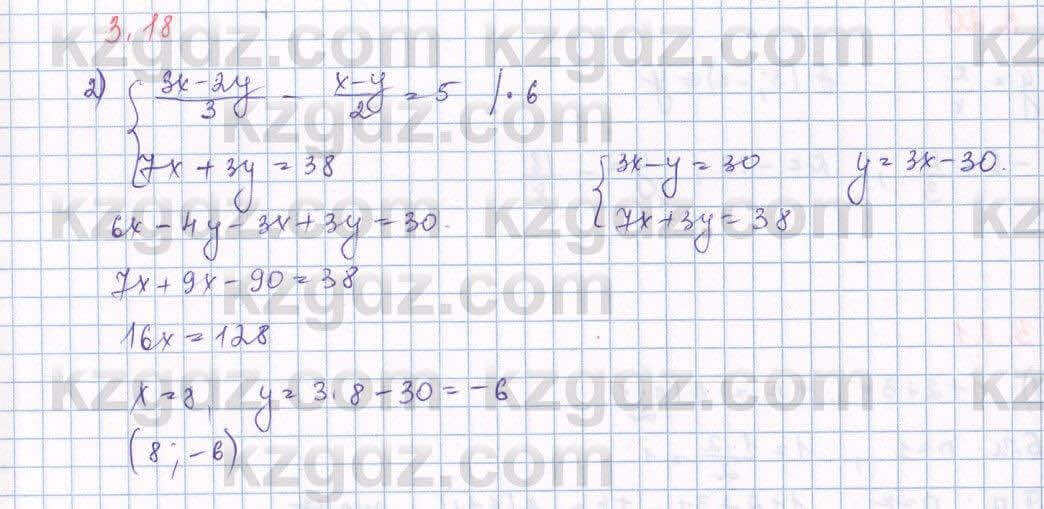 3.18
2) { (3x-2y)/3 - (x-y)/2 = 5 | · 6
7x + 3y = 38
{ 3x-y = 30    y = 3x-30.
7x+3y = 38
6x - 4y - 3x + 3y = 30.
7x + 9x - 90 = 38
16x = 128
x = 8,   y = 3·8 - 30 = -6
(8; -6)
kzgdz.com kzgdz.com kz
kzgdz.com
kzgdz.com kzgdz.com kz
kzgdz.com
kzgdz.com kzgdz.com kz
kzgdz.com